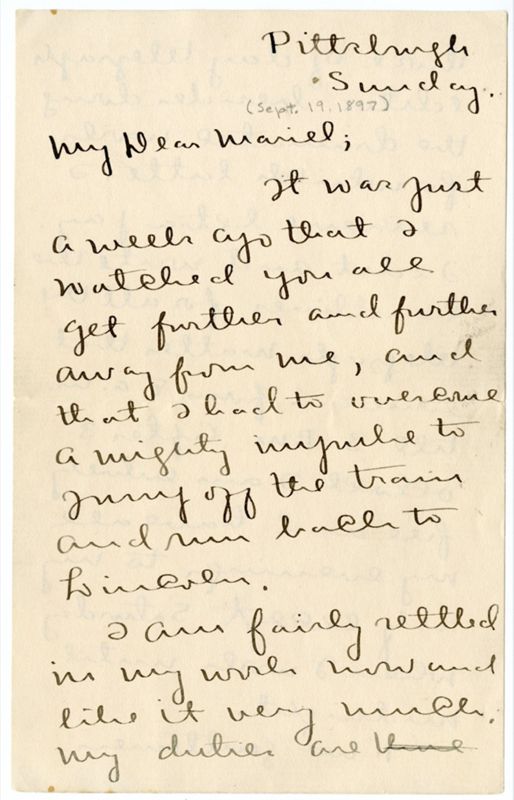 Pittsburgh
Sunday.
(Sept. 19, 1897)
My Dear Mariel;
It was just
a week ago that I
watched you all
get further and further
away from me, and
that I had to overcome
a mighty impulse to
jump off the train
and run back to
Lincoln.
I am fairly settled
in my work now and
like it very much.
My duties are